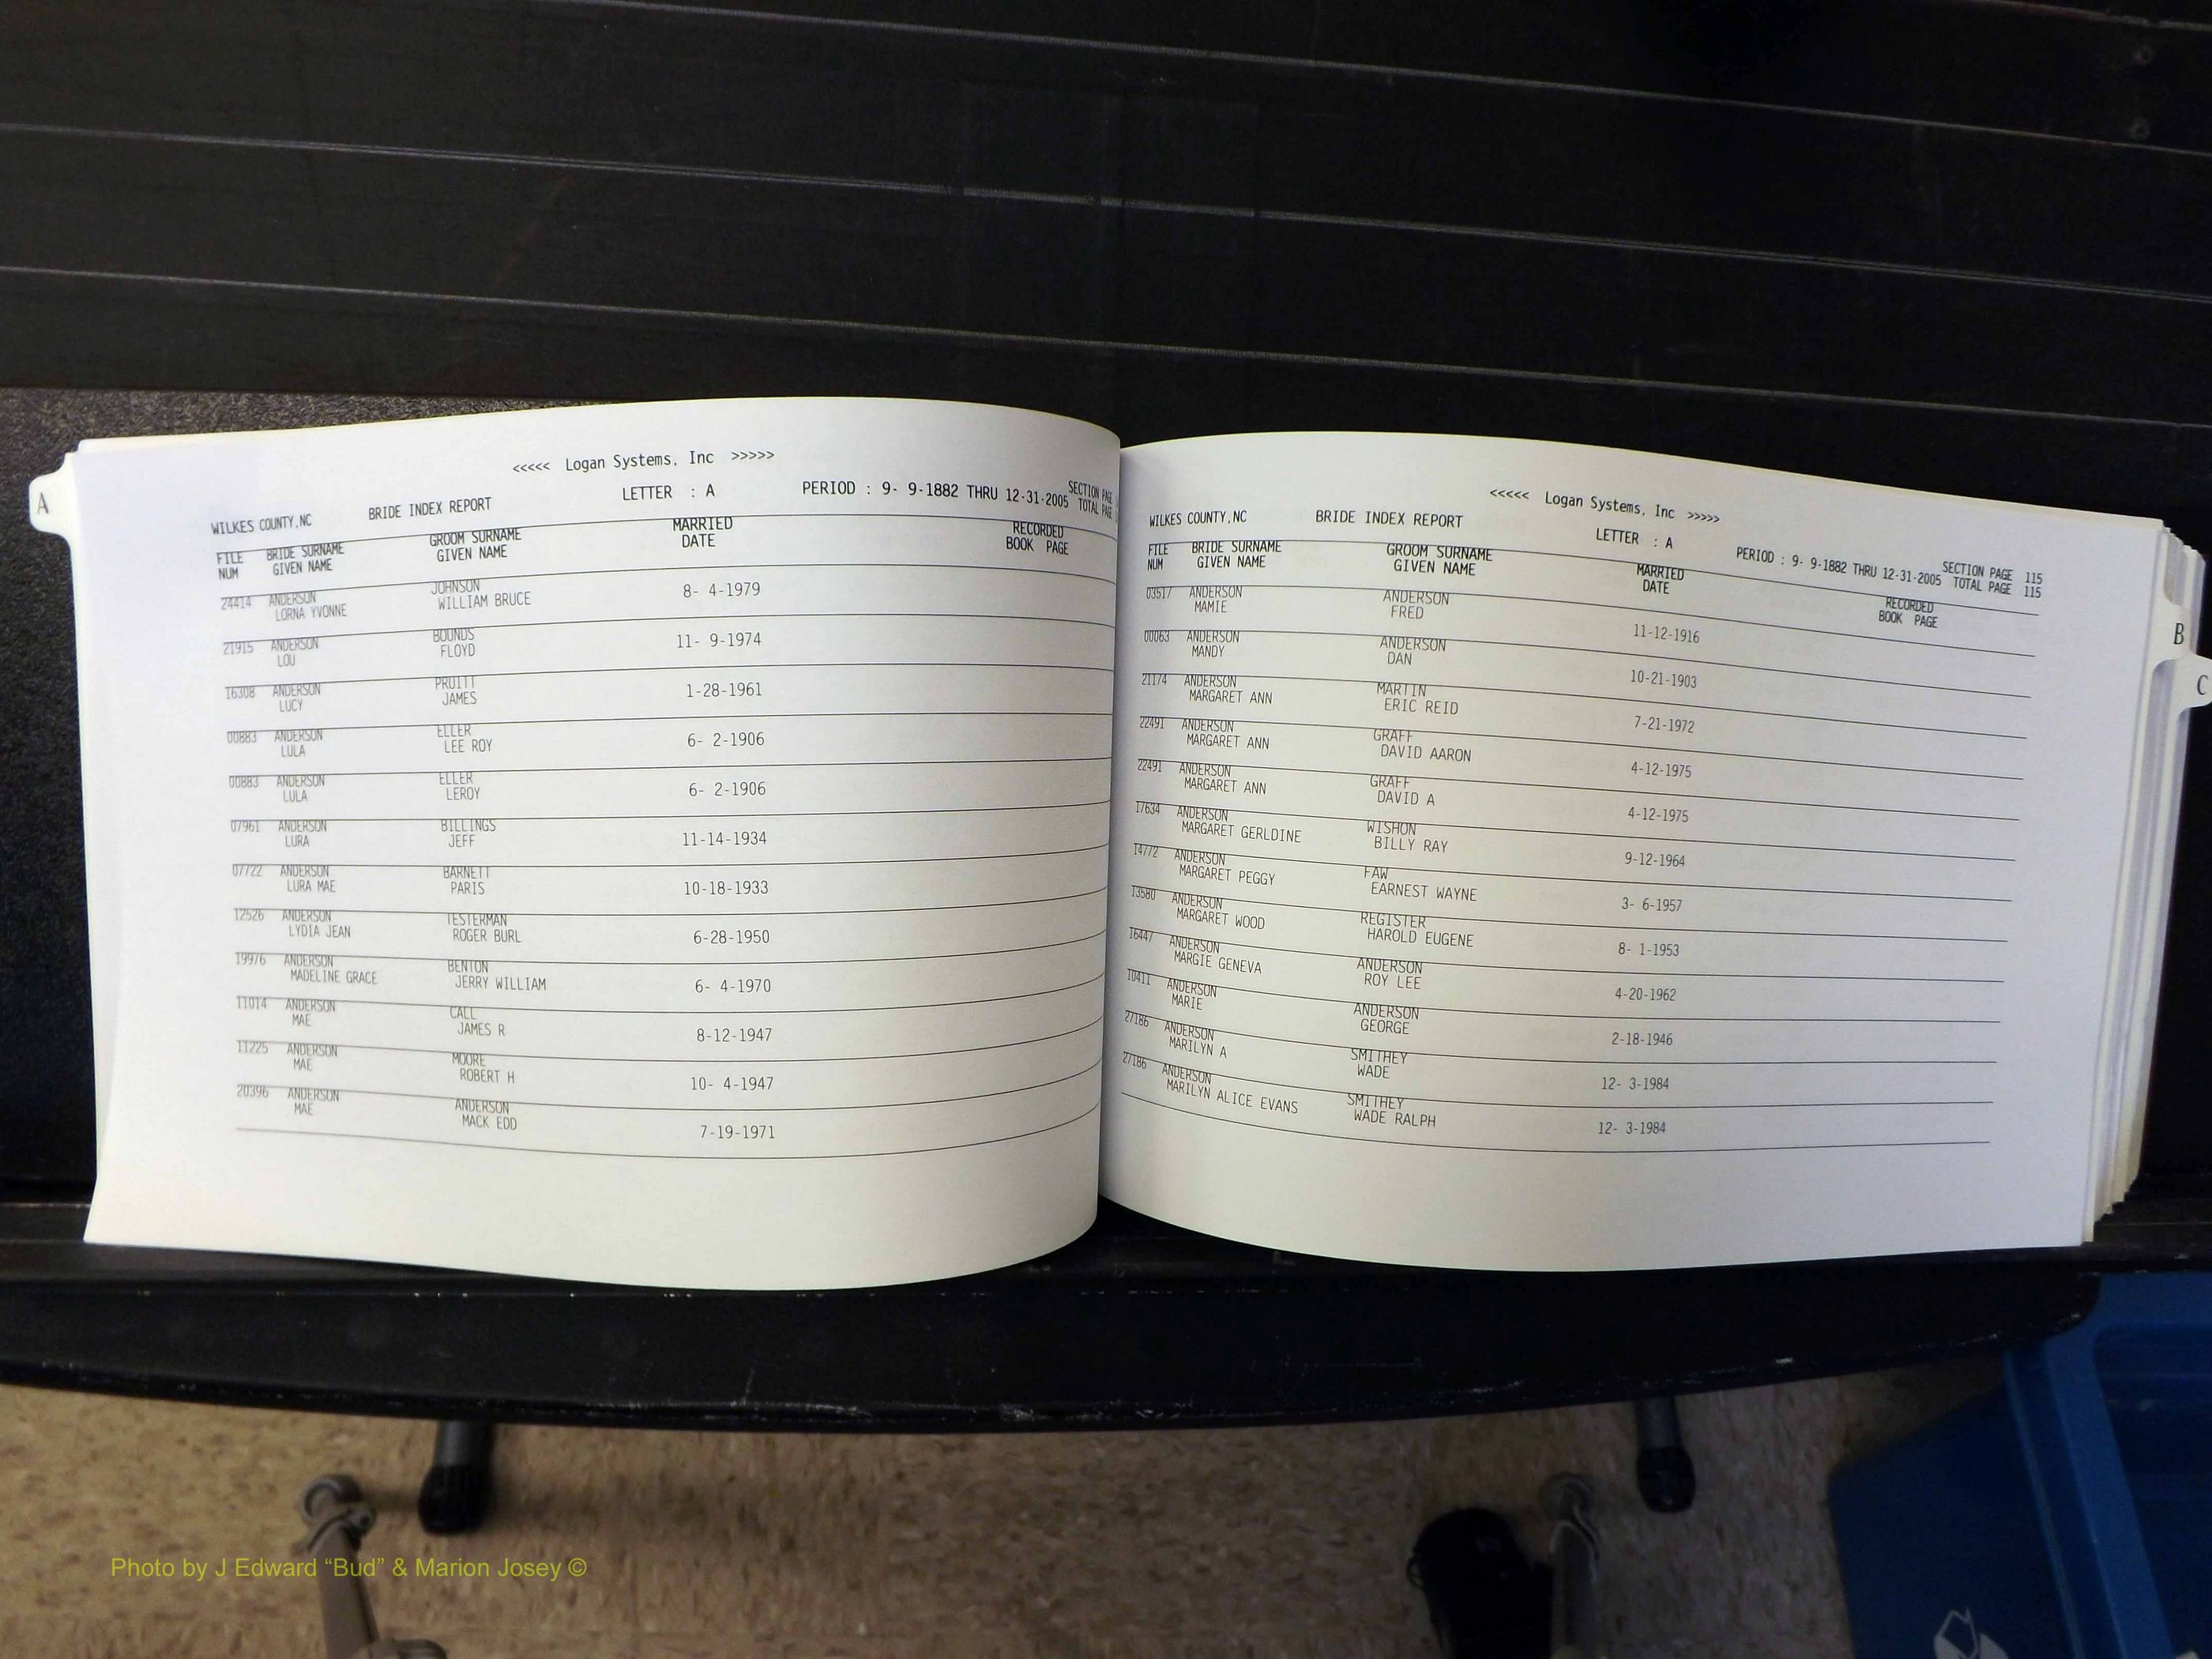 A
<<<<< Logan Systems, Inc >>>>>
WILKES COUNTY,NC BRIDE INDEX REPORT LETTER : A PERIOD : 9- 9-1882 THRU 12-31-2005 SECTION PAGE
TOTAL PAGE
FILE BRIDE SURNAME GROOM SURNAME MARRIED RECORDED
NUM GIVEN NAME GIVEN NAME DATE BOOK PAGE
24414 ANDERSON JOHNSON 8- 4-1979
LORNA YVONNE WILLIAM BRUCE
21915 ANDERSON BOUNDS 11- 9-1974
LOU FLOYD
16308 ANDERSON PRUITT 1-28-1961
LUCY JAMES
00883 ANDERSON ELLER 6- 2-1906
LULA LEE ROY
00883 ANDERSON ELLER 6- 2-1906
LULA LEROY
07961 ANDERSON BILLINGS 11-14-1934
LURA JEFF
07722 ANDERSON BARNETT 10-18-1933
LURA MAE PARIS
12526 ANDERSON TESTERMAN 6-28-1950
LYDIA JEAN ROGER BURL
19976 ANDERSON BENTON 6- 4-1970
MADELINE GRACE JERRY WILLIAM
11014 ANDERSON CALL 8-12-1947
MAE JAMES R
11225 ANDERSON MOORE 10- 4-1947
MAE ROBERT H
20396 ANDERSON ANDERSON 7-19-1971
MAE MACK EDD
<<<<< Logan Systems, Inc >>>>>
WILKES COUNTY,NC BRIDE INDEX REPORT LETTER : A PERIOD : 9- 9-1882 THRU 12-31-2005 SECTION PAGE 115
TOTAL PAGE 115
FILE BRIDE SURNAME GROOM SURNAME MARRIED RECORDED
NUM GIVEN NAME GIVEN NAME DATE BOOK PAGE
03517 ANDERSON ANDERSON 11-12-1916
MAMIE FRED
00063 ANDERSON ANDERSON 10-21-1903
MANDY DAN
21174 ANDERSON MARTIN 7-21-1972
MARGARET ANN ERIC REID
22491 ANDERSON GRAFF 4-12-1975
MARGARET ANN DAVID AARON
22491 ANDERSON GRAFF 4-12-1975
MARGARET ANN DAVID A
17634 ANDERSON WISHON 9-12-1964
MARGARET GERLDINE BILLY RAY
14772 ANDERSON FAW 3- 6-1957
MARGARET PEGGY EARNEST WAYNE
13580 ANDERSON REGISTER 8- 1-1953
MARGARET WOOD HAROLD EUGENE
16447 ANDERSON ANDERSON 4-20-1962
MARGIE GENEVA ROY LEE
10411 ANDERSON ANDERSON 2-18-1946
MARIE GEORGE
27186 ANDERSON SMITHEY 12- 3-1984
MARILYN A WADE
27186 ANDERSON SMITHEY 12- 3-1984
MARILYN ALICE EVANS WADE RALPH
B
C
Photo by J Edward “Bud” & Marion Josey ©